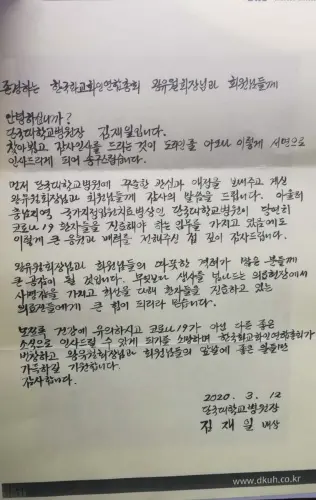 존경하는 한국화교화인연합총회 왕유원회장님과 회원님들께
안녕하십니까?
단국대학교병원장 김재일입니다.
찾아뵙고 감사인사를 드리는 것이 도리인줄 아오나 이렇게 서면으로
인사드리게 되어 송구스럽습니다.
먼저 단국대학교병원에 꾸준한 관심과 애정을 보내주고 계신
왕유원회장님과 회원님들께 감사의 말씀을 드립니다. 아울러
충남지역 국가지정입원치료병상인 단국대학교병원이 당연히
코로나19 환자들을 진료해야 하는 의무를 가지고 있음에도
이렇게 큰 응원과 배려를 전해주신 점 깊이 감사드립니다.
왕유원회장님과 회원님들의 따뜻한 격려가 많은 분들께
큰 귀감이 될 것입니다. 무엇보다 생사를 넘나드는 의료현장에서
사명감을 가지고 최선을 다해 환자들을 진료하고 있는
의료진들에게 큰 힘이 되리라 믿습니다.
모쪼록 건강에 유의하시고 코로나19가 아닌 다른 좋은
소식으로 인사드릴 수 있게 되기를 소망하며 한국화교화인연합총회가
번창하고 왕유원회장님과 회원님들의 앞날에 좋은 일들만
가득하길 기원합니다.
감사합니다.
2020. 3. 12
단국대학교병원장
김재일 배상
www.dkuh.co.kr